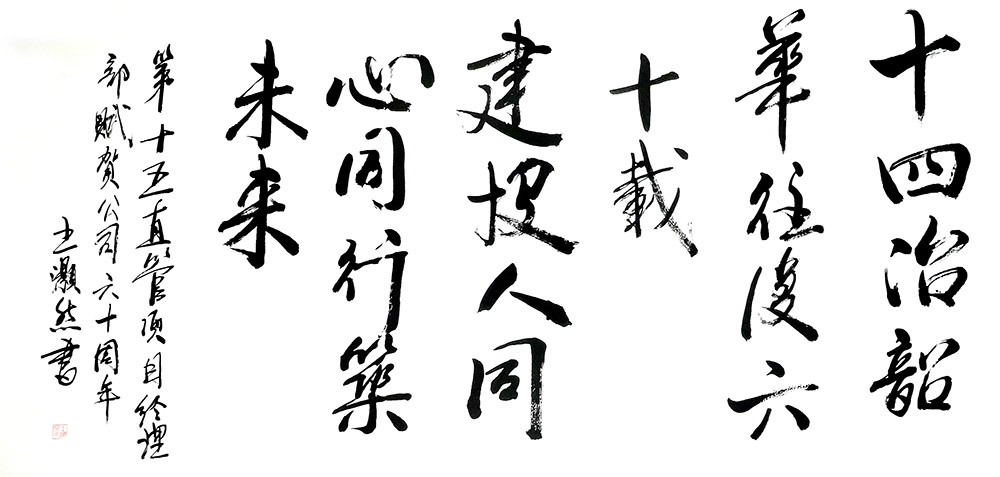 十四冶韶
華往復六
十載
建投人同
心同行築
未来
第十五直管项目经理
部赋贺公司六十周年
王灏然书